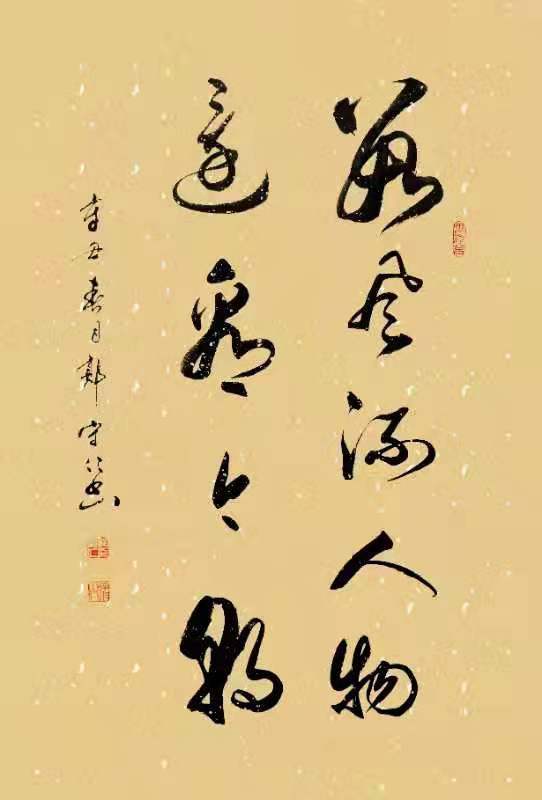 数风流人物
还看今朝
辛丑春月郭守